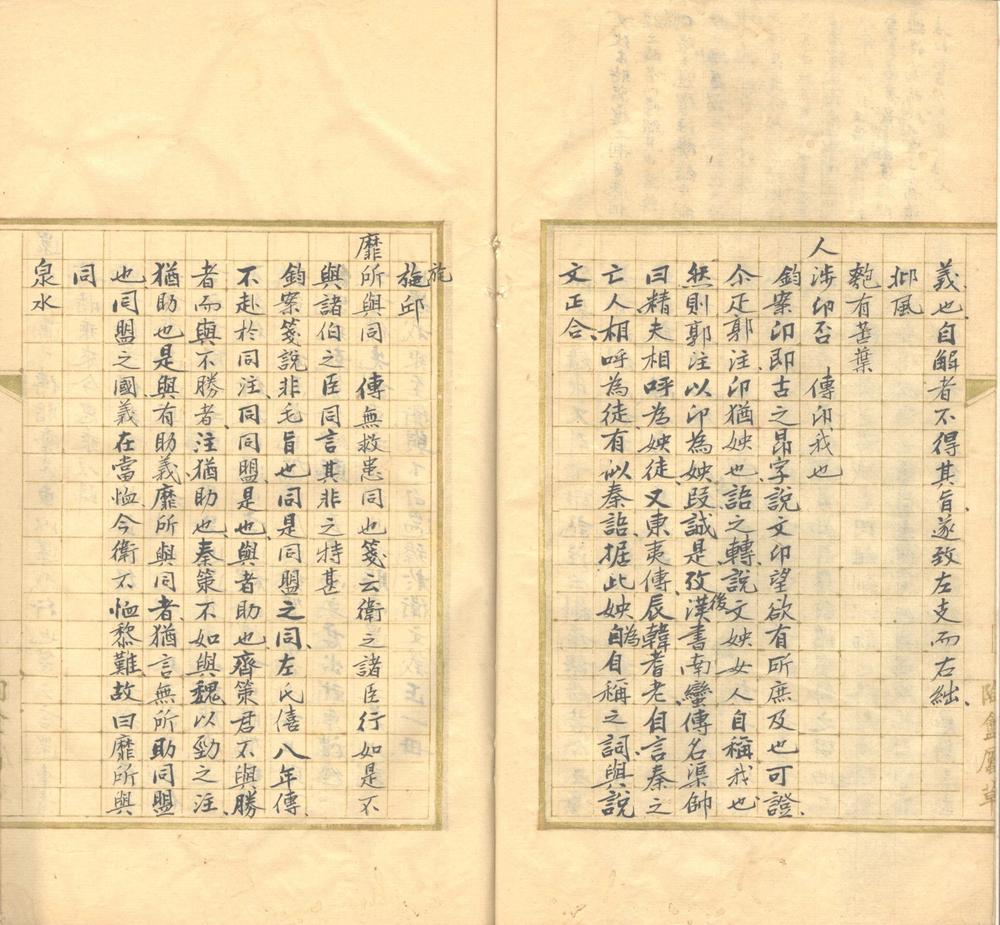 義也自解者不得其旨遂致左支而右絀
邶風
匏有苦葉
人涉卬否　傳卬我也
鈞案卬即古之昻字說文卬望欲有所庶及也可證
尒疋郭注卬猶姎也語之轉說文姎女人自稱我也
然則郭注以卬為姎叚誠是攷後漢書南蠻傳名渠帥
曰精夫相呼為姎徒又東夷傳辰韓耆老自言秦之
亡人相呼為徒有似秦語据此姎自為自稱之詞與說
文正合
旄
旄邱
靡所與同　傳無救患同也箋云衛之諸臣行如是不
與諸伯之臣同言其非之特甚
鈞案箋說非毛旨也同是同盟之同左氏僖八年傳
不赴於同注同同盟是也與者助也齊策君不與勝
者而與不勝者注猶助也秦策不如與魏以勁之注
猶助也是與有助義靡所與同者猶言無所助同盟
也同盟之國義在當恤今衛不恤黎難故曰靡所與
同
泉水